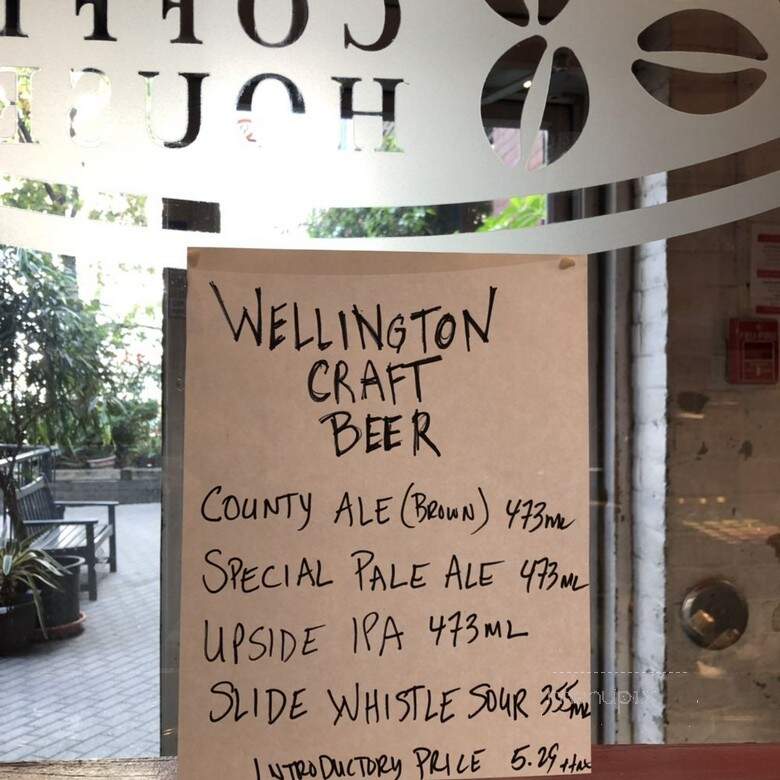 COFFEE
HOUSE
WELLINGTON
CRAFT
BEER
COUNTY ALE (BROWN) 473ML
SPECIAL PALE ALE 473ML
UPSIDE IPA 473ML
SLIDE WHISTLE SOUR 355ML
INTRODUCTORY PRICE 5.29 + tax